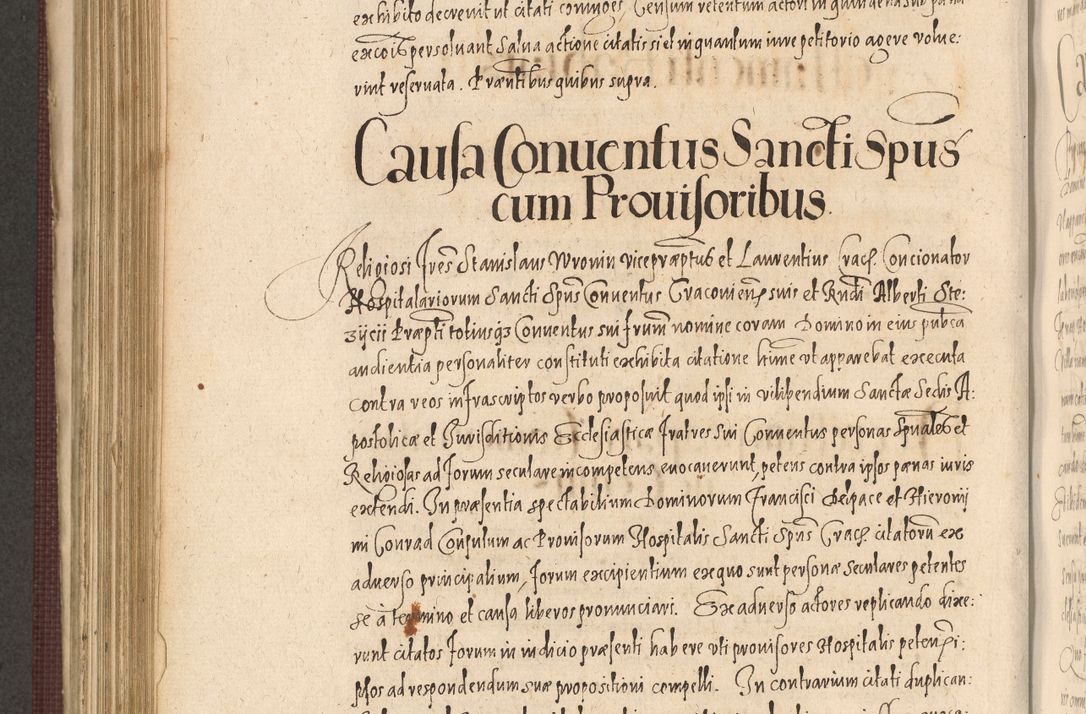 exhibito decrevit ut citati commoes, Censum retentum actori in quindena sub pœna
excois persoluant Salua actione citatis si et in quantum iure petitorio agere volue:
rint reseruata. Præntibus quibus supra.
Causa Conuentus Sancti Spus
cum Prouisoribus.
Religiosi frēs Stanislaus Wronin vicepræptus et Laurentius Crac: Concionator
Hospitalariorum Sancti Spus Conuentus Cracouien: suis et Rndi Alberti Ste:
zijcii Præpti totiusq3 Conuentus sui frum nomine coram Domino in eius pubca
audientia personaliter constituti exhibita citatione hmne vt apparebat executa
contra reos infrascriptos verbo proposuit quod ipsi in vilipendium Sanctæ Sedis A:
postolicæ et Jurisditionis Ecclesiasticæ fratres sui Conuentus personas spuales et
Religiosas ad forum seculare incompetens euocauerunt, petens contra ipsos pœnas iuris
extendi. In præsentia spectabilium Dominorum Francisci Delpace et Hieronij
mi Conrad Consulum ac Prouisorum Hospitalis Sancti Spus Crac: citatorū ex
aduerso principalium, forum excipientium ex quo sunt personæ seculares petentes
se a termino et causa liberos pronunciari. Ex aduerso actores replicando dixe:
runt citatos forum in iudicio præsenti habere vti prouisores Hospitalis peten: i:
psos ad respondendum suæ propositioni compelli. In contrarium citati duplican: